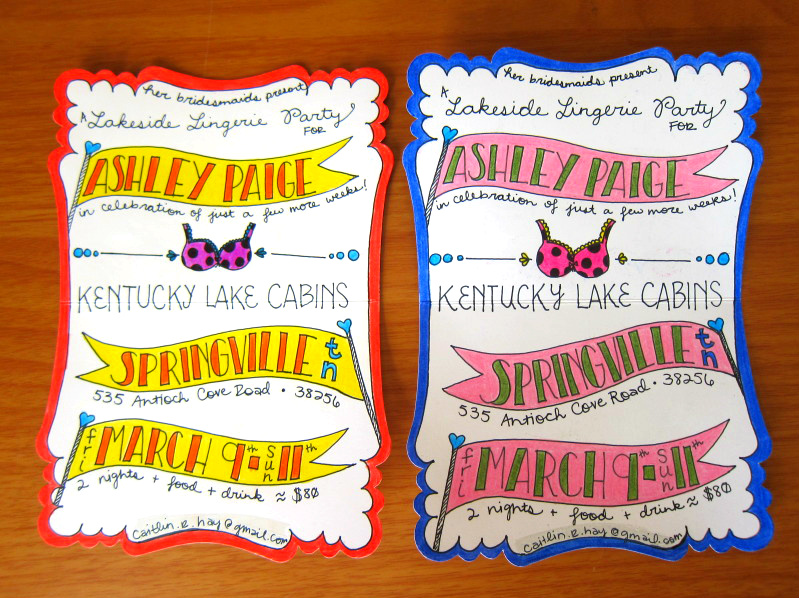 her bridesmaids present
A Lakeside Lingerie Party
FOR
ASHLEY PAIGE
in celebration of just a few more weeks!
KENTUCKY LAKE CABINS
SPRINGVILLE tn
535 Antioch Cove Road • 38256
fri MARCH 9th - sun 11th
2 nights + food + drink ≈ $80
caitlin.e.hay@gmail.com
her bridesmaids present
A Lakeside Lingerie Party
FOR
ASHLEY PAIGE
in celebration of just a few more weeks!
KENTUCKY LAKE CABINS
SPRINGVILLE tn
535 Antioch Cove Road • 38256
fri MARCH 9th - sun 11th
2 nights + food + drink ≈ $80
caitlin.e.hay@gmail.com